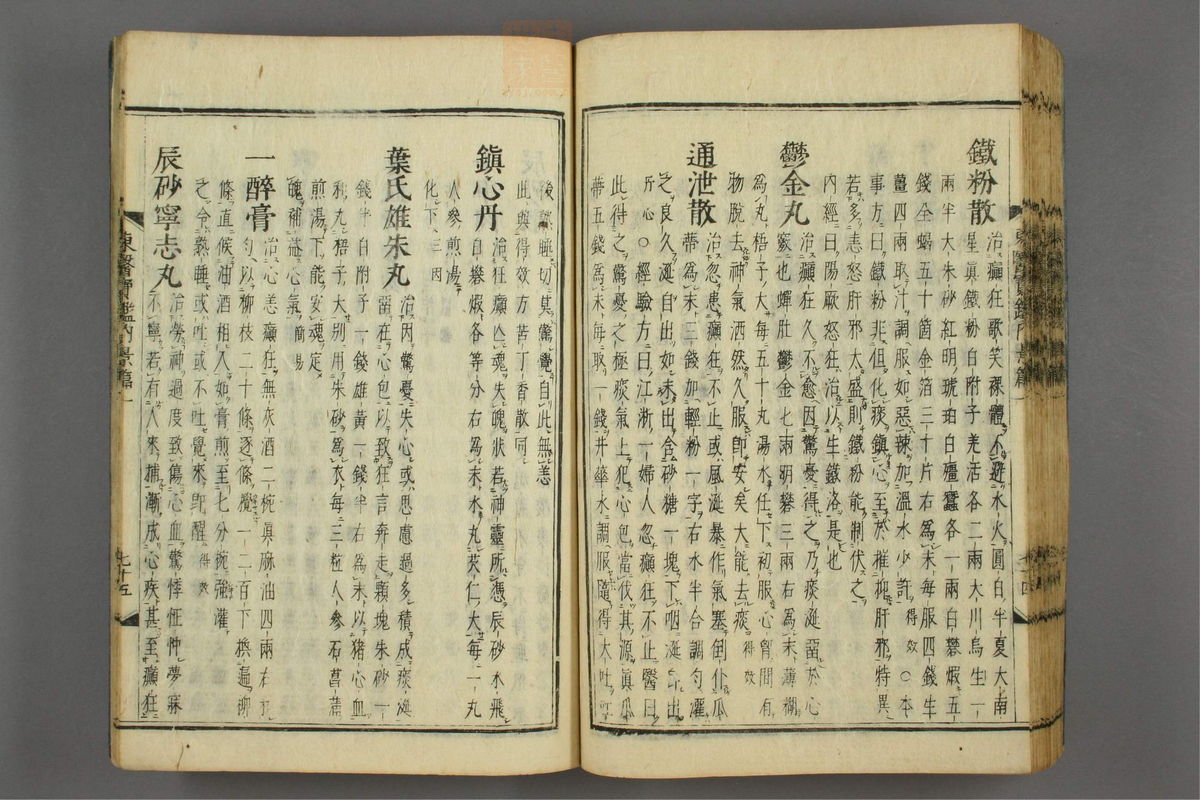 鐵粉散治癲狂歌笑裸體不避水火圓白半夏大南
星眞鐵粉白附子羌活各二兩大川烏生一
兩半大朱砂紅明琥珀白殭蠶各一兩白礬煅五
錢全蝎五十箇金箔三十片右爲末每服四錢生
薑四兩取汁調服如惡辣加溫水少許得效○本
事方曰鐵粉非但化痰鎭心至於摧抑肝邪特異
若多恚怒肝邪太盛則鐵粉能制伏之
內經曰陽厥怒狂治以生鐵洛是也
鬱金丸治癲狂久不愈因驚憂得之乃痰涎留於心
竅也蟬肚鬱金七兩明礬三兩右爲末薄糊
爲丸梧子大每五十丸湯水任下初服心胷間有
物脫去神氣洒然久服卽安矣大能去痰得效
通泄散治忽患癲狂不止或風涎暴作氣塞倒仆瓜
蔕爲末三錢加輕粉一字右水半合調勻灌
之良久涎自出如未出含砂糖一塊下咽涎卽出
斤心○經驗方曰江浙一婦人忽癲狂不止醫曰
此得之驚憂之極痰氣上犯心包當伐其源眞瓜
蔕五錢爲末每取一錢井華水調服隨得大吐吐
後熟睡切莫驚覺自此無恙
此與得效方苦丁香散同
鎭心丹治狂癲亾魂失魄狀若神靈所憑辰砂水飛
白礬煅各等分右爲末水丸芡仁大每一丸
人參煎湯
化下三因
葉氏雄朱丸治因驚憂失心或思慮過多積成痰涎
留在心包以致狂言奔走顆塊朱砂一
錢半白附子一錢雄黃一錢半右爲末以猪心血
和丸梧子大別用朱砂爲衣每三粒人參石菖蒲
煎湯下能安魂定
魄補益心氣簡易
一醉膏治心恙癲狂無灰酒二椀眞麻油四兩右和
勻以柳枝二十條逐條攪一二百下換遍柳
條直候油酒相入如膏煎至七分椀強灌
之令熟睡或吐或不吐覺來卽醒得效
辰砂寧志丸治勞神過度致傷心血驚悸怔忡夢寐
不寧若有人來捕漸成心疾甚至癲狂
東醫寶鑑內景篇一
七十五